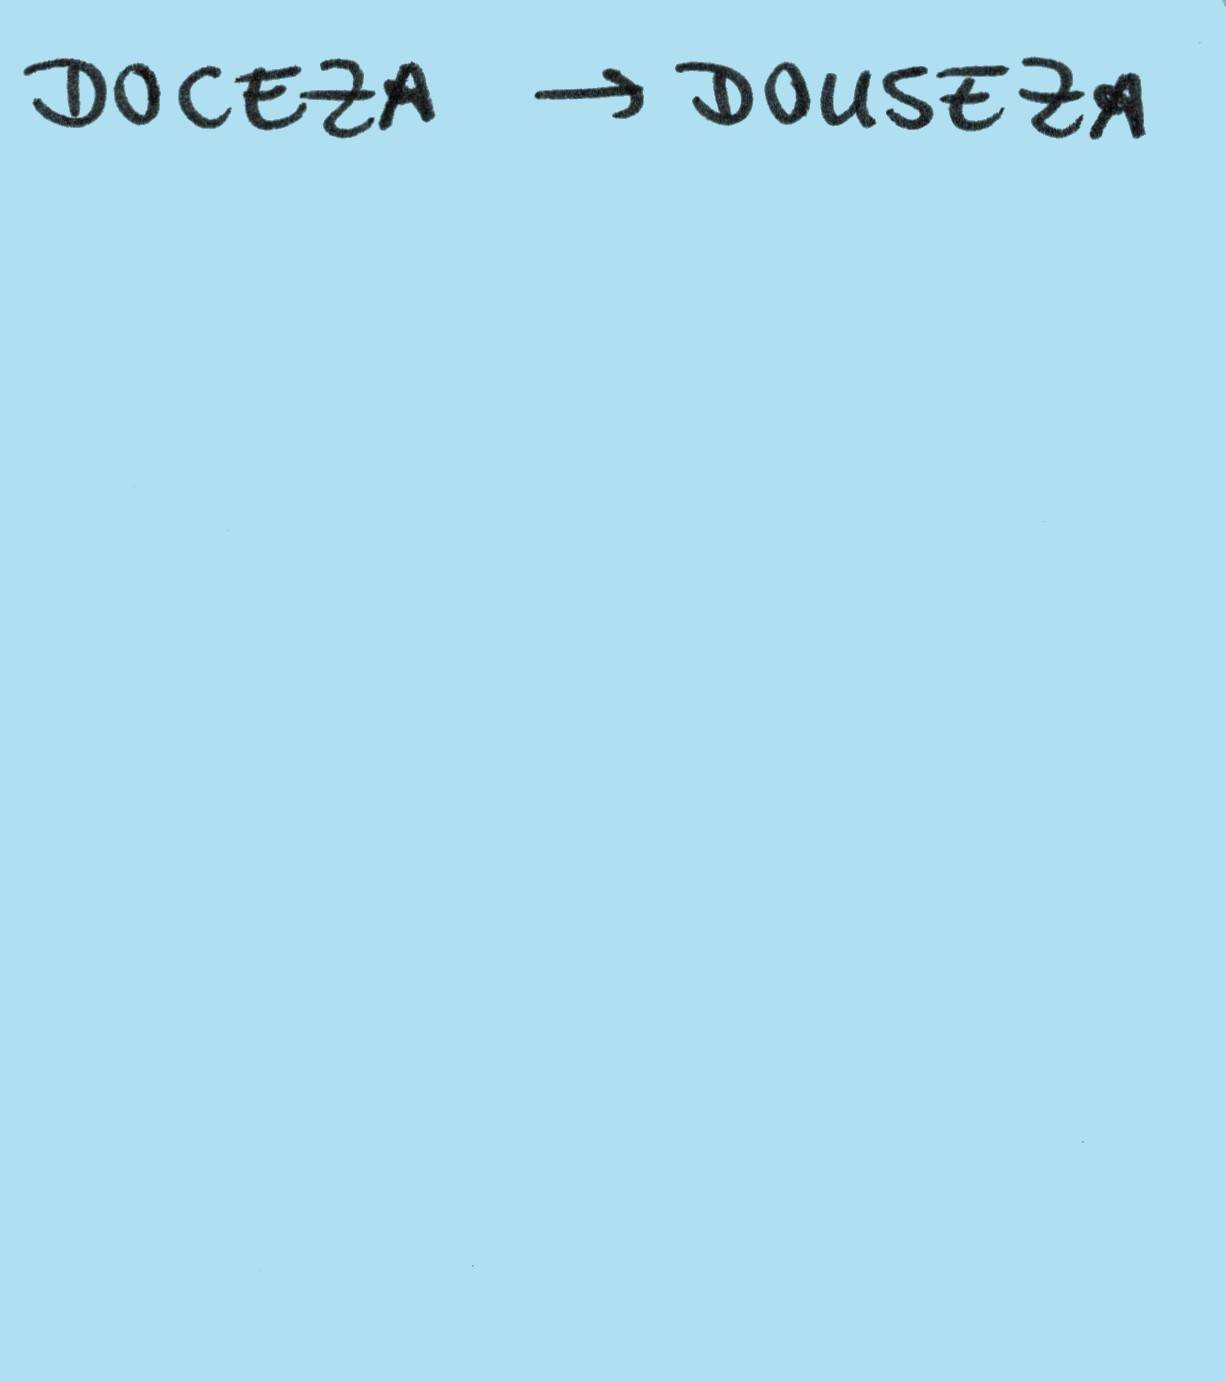 DOCEZA → DOUSEZA